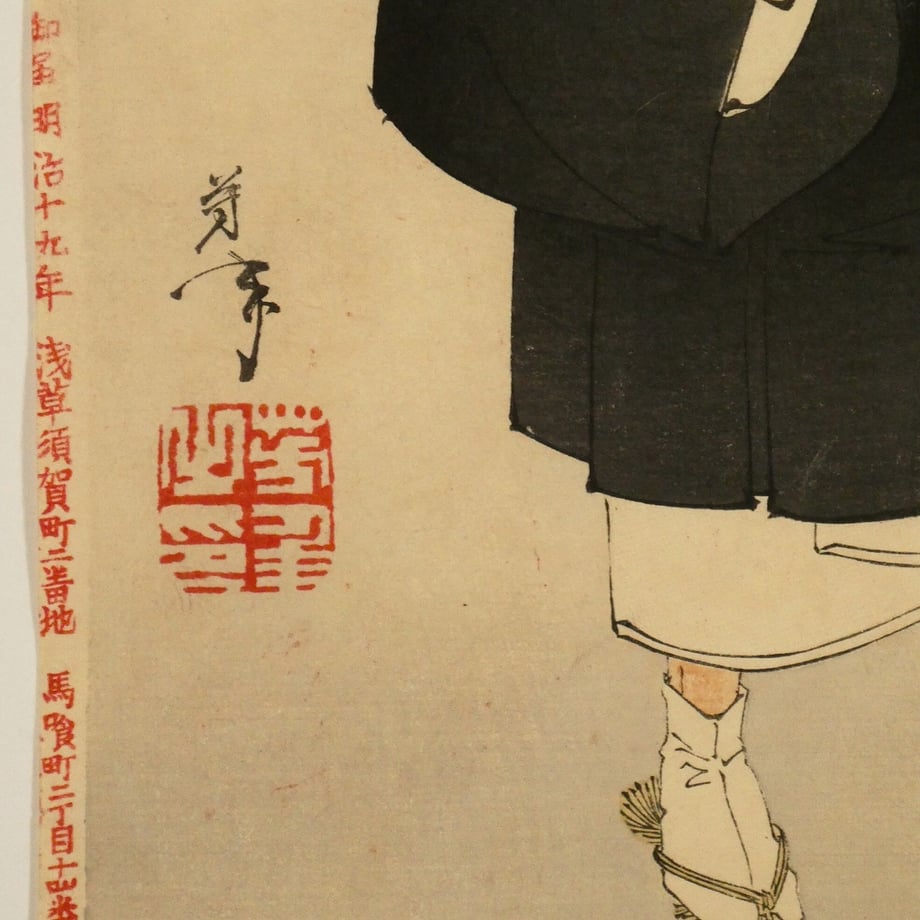 芳年
御届 明治十九年 浅草須賀町二番地 馬喰町二丁目十四番